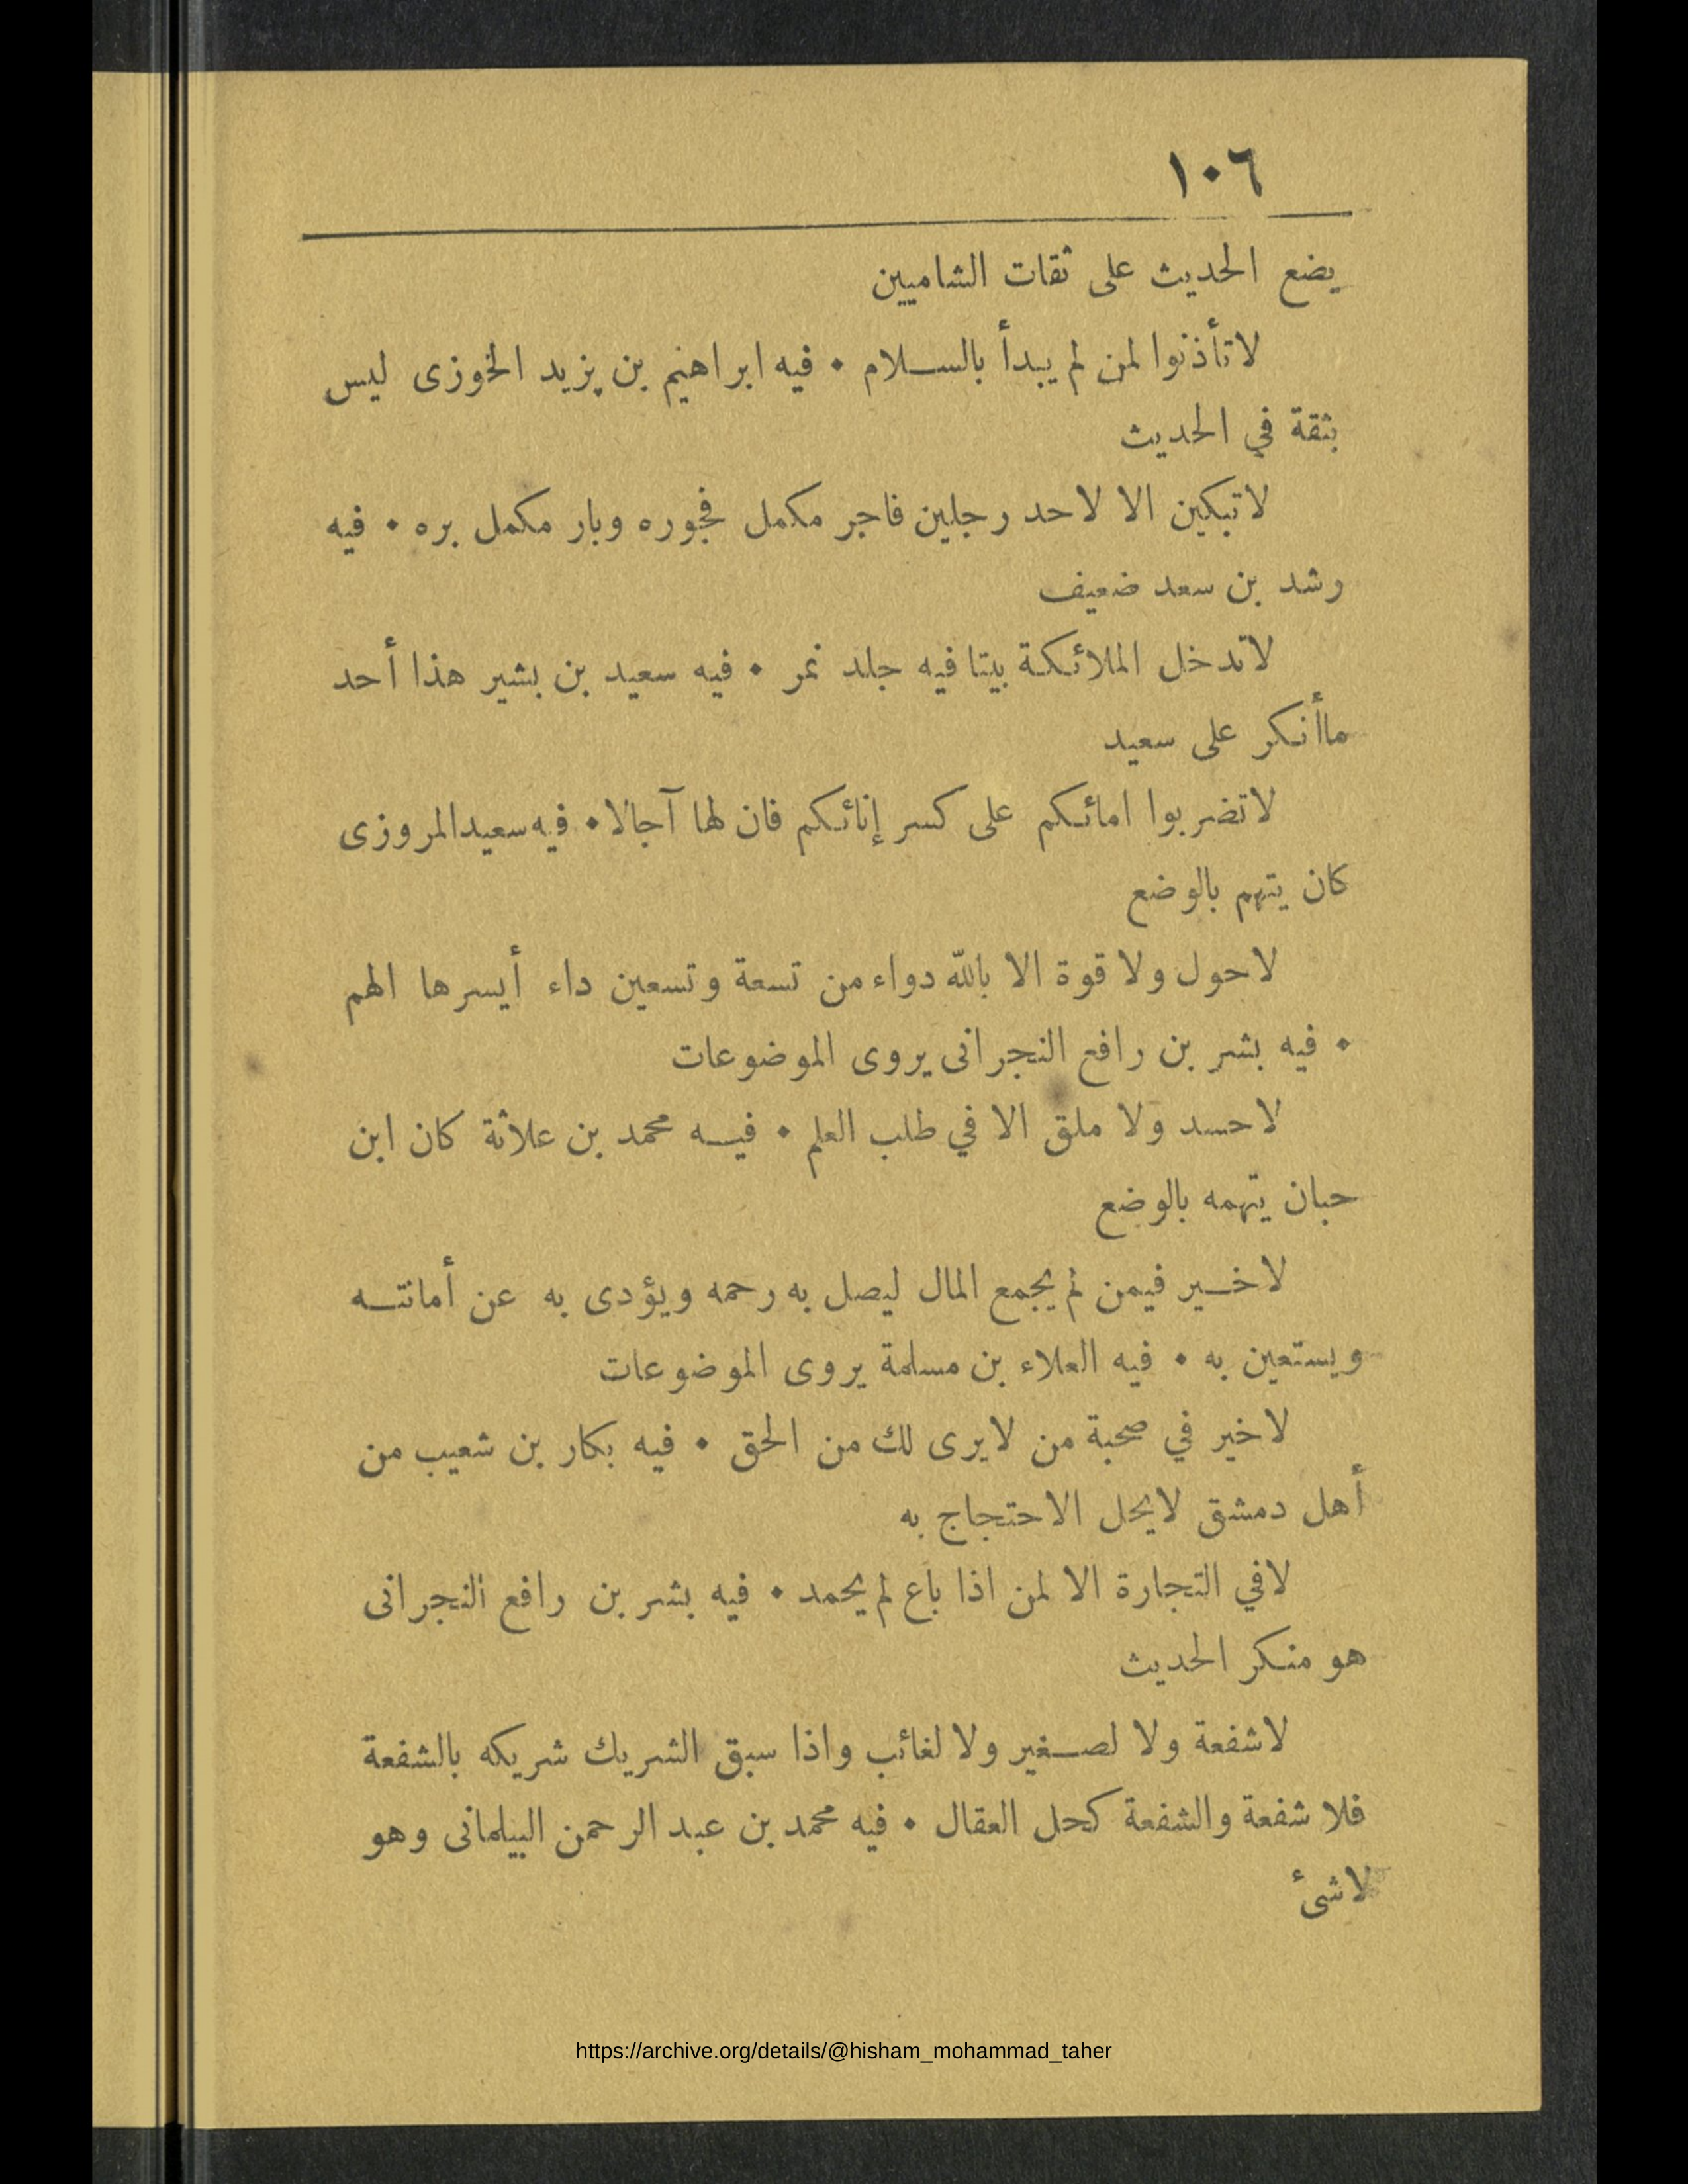 ١٠٦
يضع الحديث على ثقات الشاميين
لاتأذنوا لمن لم يبدأ بالسلام • فيه ابراهيم بن يزيد الخوزى ليس
بثقة في الحديث
لاتبكين الا لاحد رجلين فاجر مكمل فجوره وبار مكمل بره • فيه
رشد بن سعد ضعيف
لاتدخل الملائكة بيتا فيه جلد نمر • فيه سعيد بن بشير هذا أحد
ماأنكر على سعيد
لاتضربوا امائكم على كسر إنائكم فان لها آجالا • فيه سعيد المروزى
كان يتهم بالوضع
لاحول ولا قوة الا بالله دواء من تسعة وتسعين داء أيسرها الهم
• فيه بشر بن رافع النجرانى يروى الموضوعات
لاحسد ولا ملق الا في طلب العلم • فيه محمد بن علاثة كان ابن
حبان يتهمه بالوضع
لاخير فيمن لم يجمع المال ليصل به رحمه ويؤدى به عن أمانته
ويستعين به • فيه العلاء بن مسلمة يروى الموضوعات
لاخير في صحبة من لايرى لك من الحق • فيه بكار بن شعيب من
أهل دمشق لايحل الاحتجاج به
لافي التجارة الا لمن اذا باع لم يحمد • فيه بشر بن رافع النجرانى
هو منكر الحديث
لاشفعة ولا لصغير ولا لغائب واذا سبق الشريك شريكه بالشفعة
فلا شفعة والشفعة كحل العقال • فيه محمد بن عبد الرحمن البيلمانى وهو
لاشئ
https://archive.org/details/@hisham_mohammad_taher